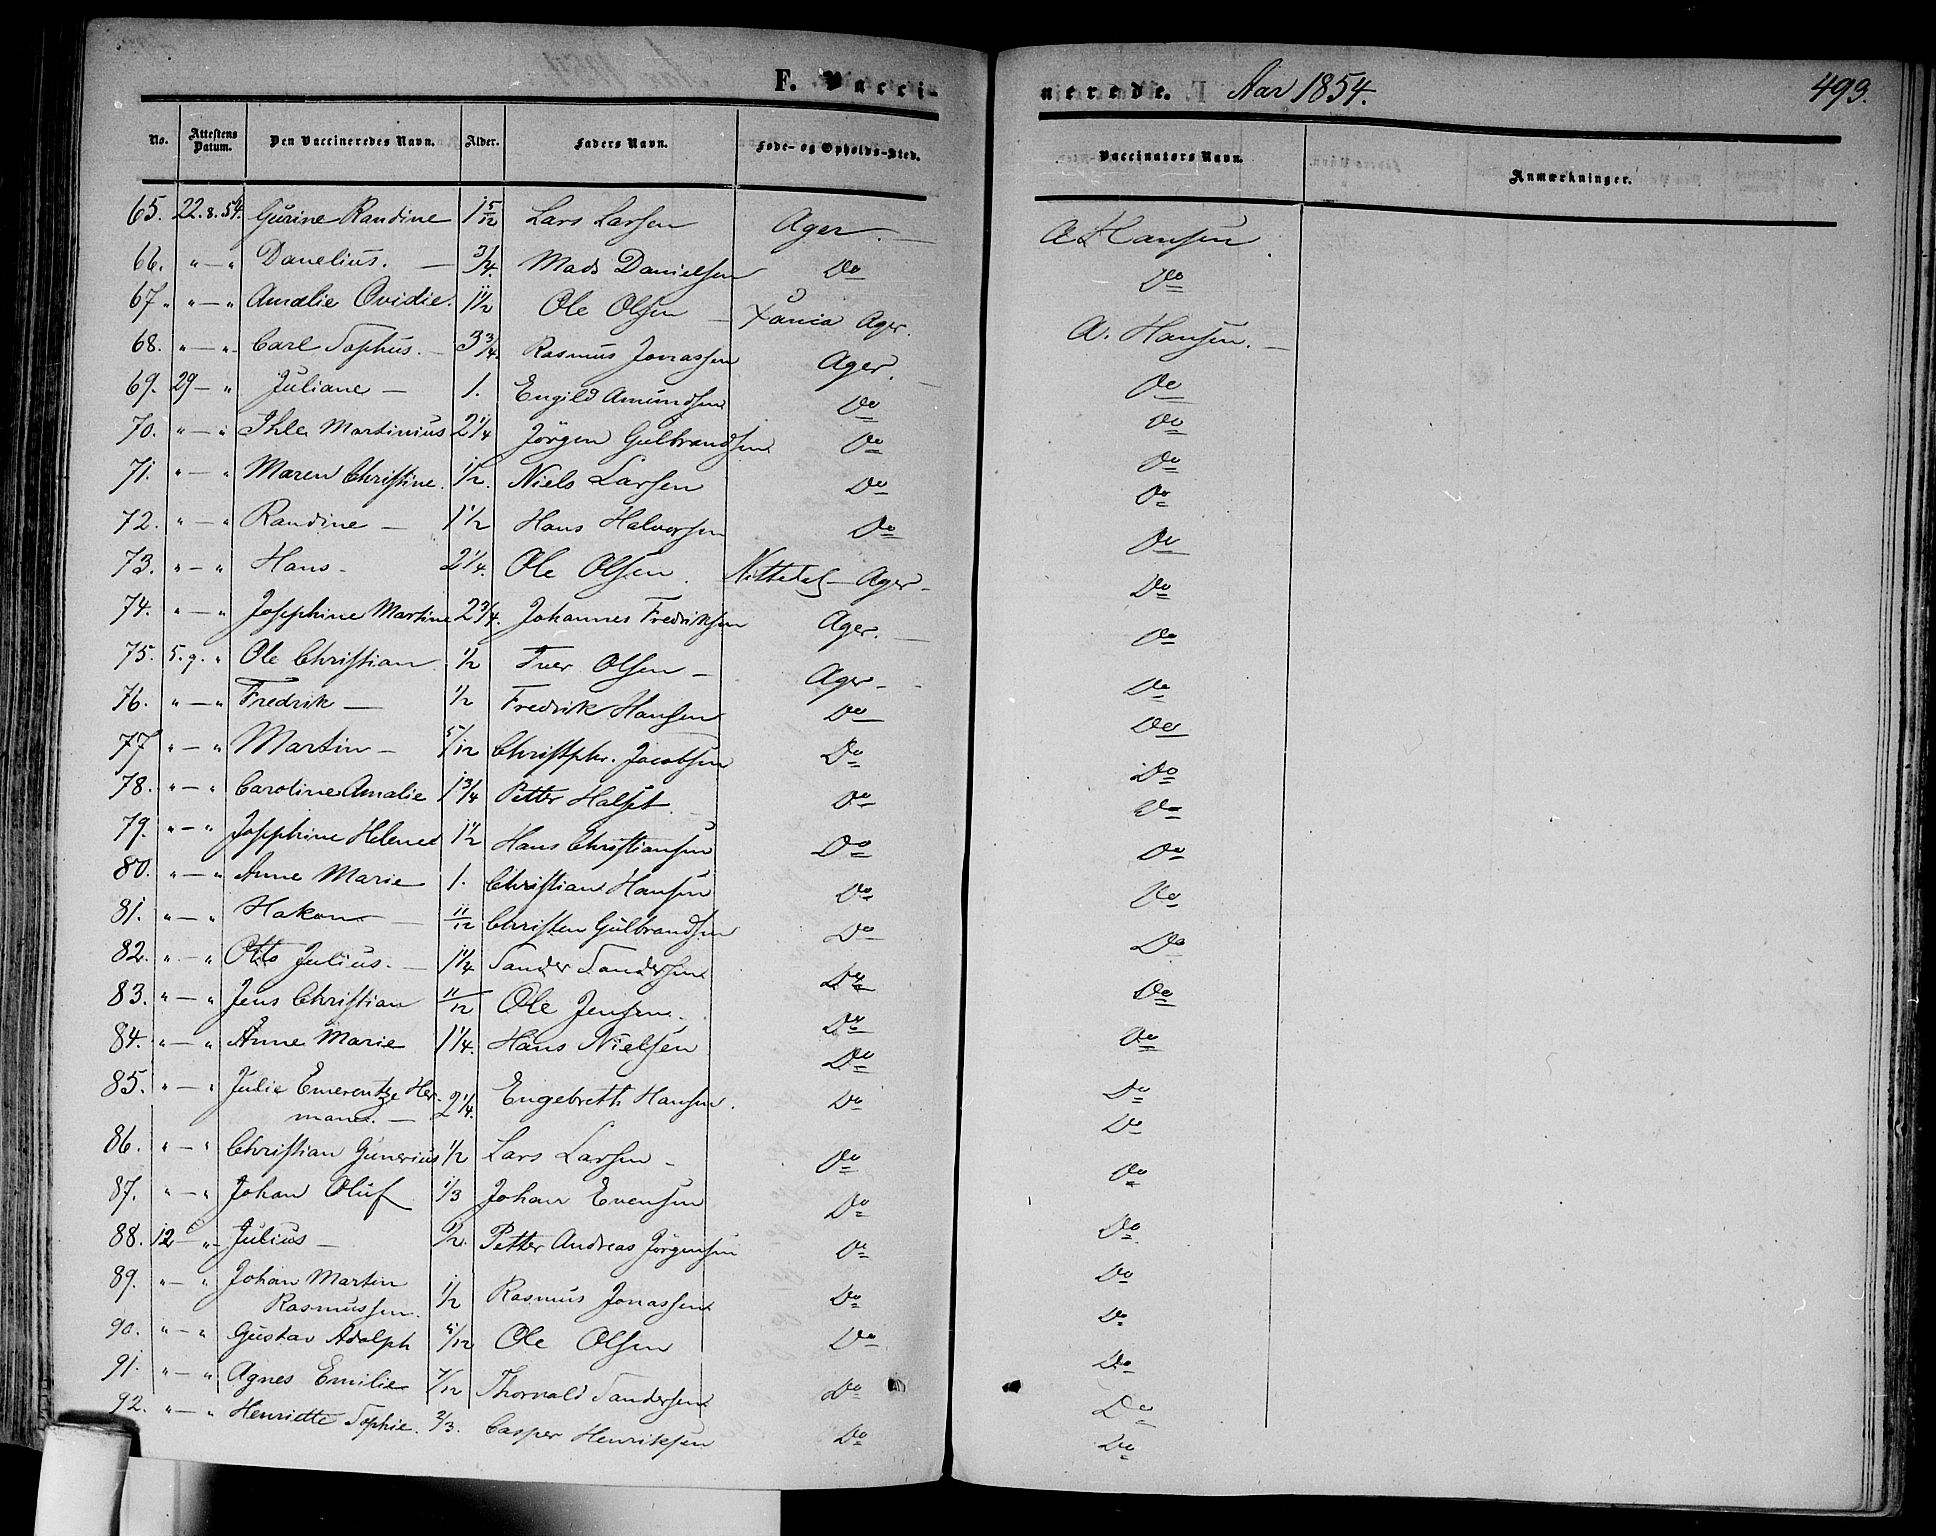 F. Vaccinerede. Aar 1854. 493.
No. Attestens Datum. Den Vaccineredes Navn. Alder. Faders Navn. Føde- og Opholds-Sted. Vaccinators Navn. Anmærkninger.
65. 22.8.54. Gurine Randine 1 5/12 Lars Larsen Ager. — A Hansen
66. " — " Danelius. — 3/4. Mads Danielsen Do Do
67 " " — " Amalie Ovidie. 1 1/2 Ole Olsen — Ager. A. Hansen. —
68. " — " Carl Sophus. — 3 3/4 Rasmus Jonassen Ager. — Do
69. 29 — " Juliane — 1. Engild Amundsen Do Do
70. " — " Ihle Martinius 2 1/4 Jörgen Gulbrandsen Do Do
71. " — " Maren Christine. 1/2. Niels Larsen Do Do
72. " — " Randine — 1 1/2 Hans Halvorsen Do Do
73. " — " Hans — 2 1/4. Ole Olsen. Nittedal — Ager — Do
74. " — " Josephine Martine 2 3/4. Johannes Fredriksen Ager. — Do
75. 5.9. " Ole Christian 1/2 Iver Olsen — Ager - Do
76. " — " Fredrik — 1/2 Fredrik Hansen Do Do
77 " — " Martin — 5/12 Christphr. Jacobsen Do Do
78. " — " Caroline Amalie 1 3/4 Petter Halset. Do Do
79. " — " Josephine Helene 1 1/2 Hans Christiansen Do Do
80. " — " Anne Marie 1. Christian Hansen Do Do
81. " — " Hakon — 11/12 Christen Gulbrandsen Do Do
82. " — " Otto Julius. — 1 1/4 Sander Sandersen Do Do
83. " — " Jens Christian 11/12 Ole Jensen. Do Do
84. " — " Anne Marie 1 1/4. Hans Nielsen Do Do
85. " — " Julie Emerentze Her- Engebreth Hansen. Do Do
mane. — 2 1/4.
86. " — " Christian Gunerius 1/2 Lars Larsen — Do Do
87. " — " Johan Oluf 1/3 Johan Evensen Do Do
88. 12 — " Julius — 1/2. Petter Andreas Jörgensen Do Do
89. " — " Johan Martin
Rasmussen. 1/2 Rasmus Jonassen Do Do
90. " — " Gustav Adolph Ole Olsen Do Do
91. " — " Agnes Emilie 7/12 Thorvald Sandersen Do Do
92. " — " Henriette Sophie. 2/3. Casper Henriksen Do Do